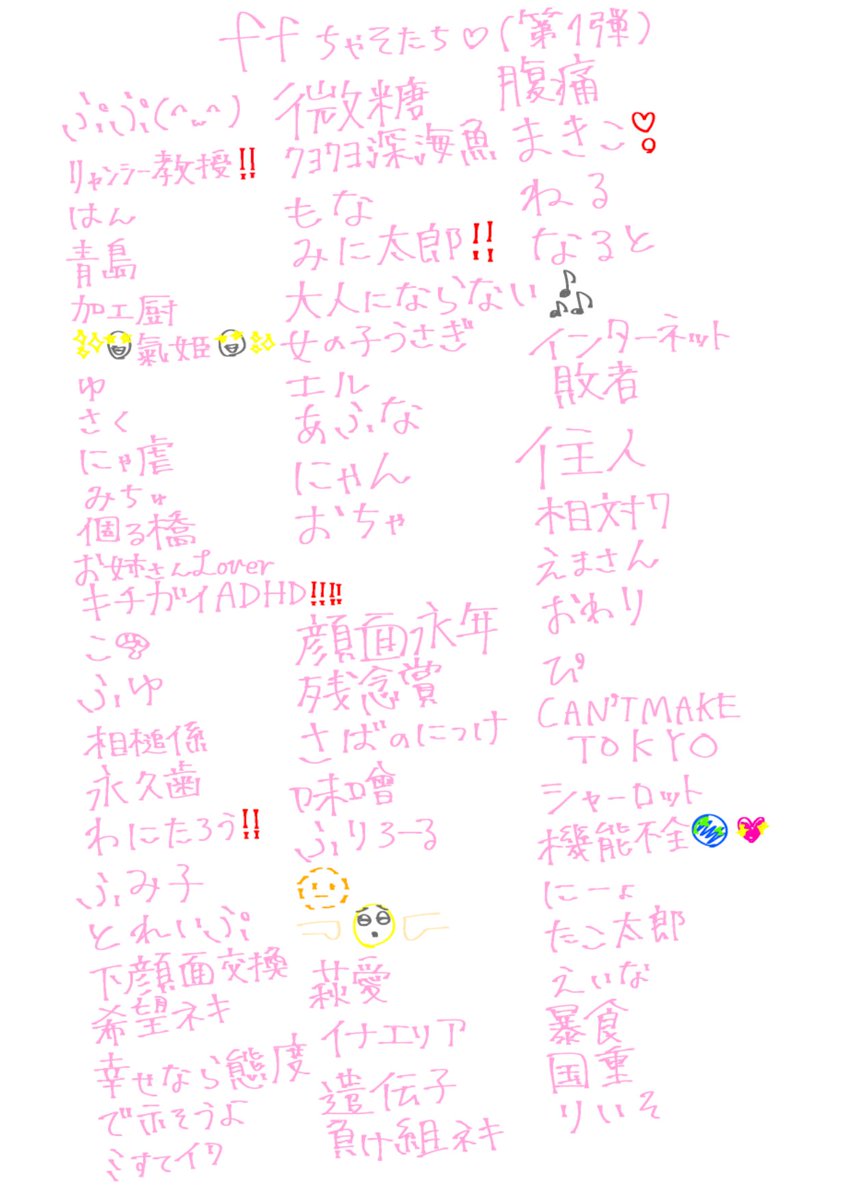 ffちゃそたち♡(第1弾)
ぷぷ(^_^)
リャンシー教授‼
はん
青島
加工厨
✨🤩氣姫🤩✨
ゆ
さく
にゃ虐
みちゅ
個る橋
お姉さんLover
キチガイADHD‼‼
こ
ふゆ
相槌係
永久歯
わにたろう‼
ふみ子
とれいぷ
下顔面交換
希望ネキ
幸せなら態度
で示そうよ
ミすてイワ
微糖
ワヨワヨ深海魚
もな
みに太郎‼
大人にならない🎶
女の子うさぎ
エル
あふな
にゃん
おちゃ
顔面永年
残念賞
さばのにつけ
味噌
ふりろーる
萩愛
イナエリア
遺伝子
負け組ネキ
腹痛
まきこ❣
ねる
なると
インターネット
敗者
住人
相対ワ
えまさん
おわり
ぴ
CAN'T MAKE
TOKYO
シャーロット
機能不全🌏💖
にーょ
たこ太郎
えいな
暴食
国重
りいそ